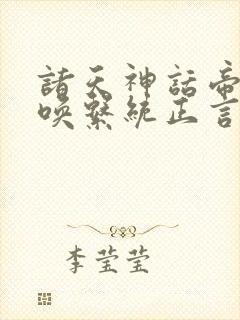 諸天神話帝
喚繫統正言
李莹莹